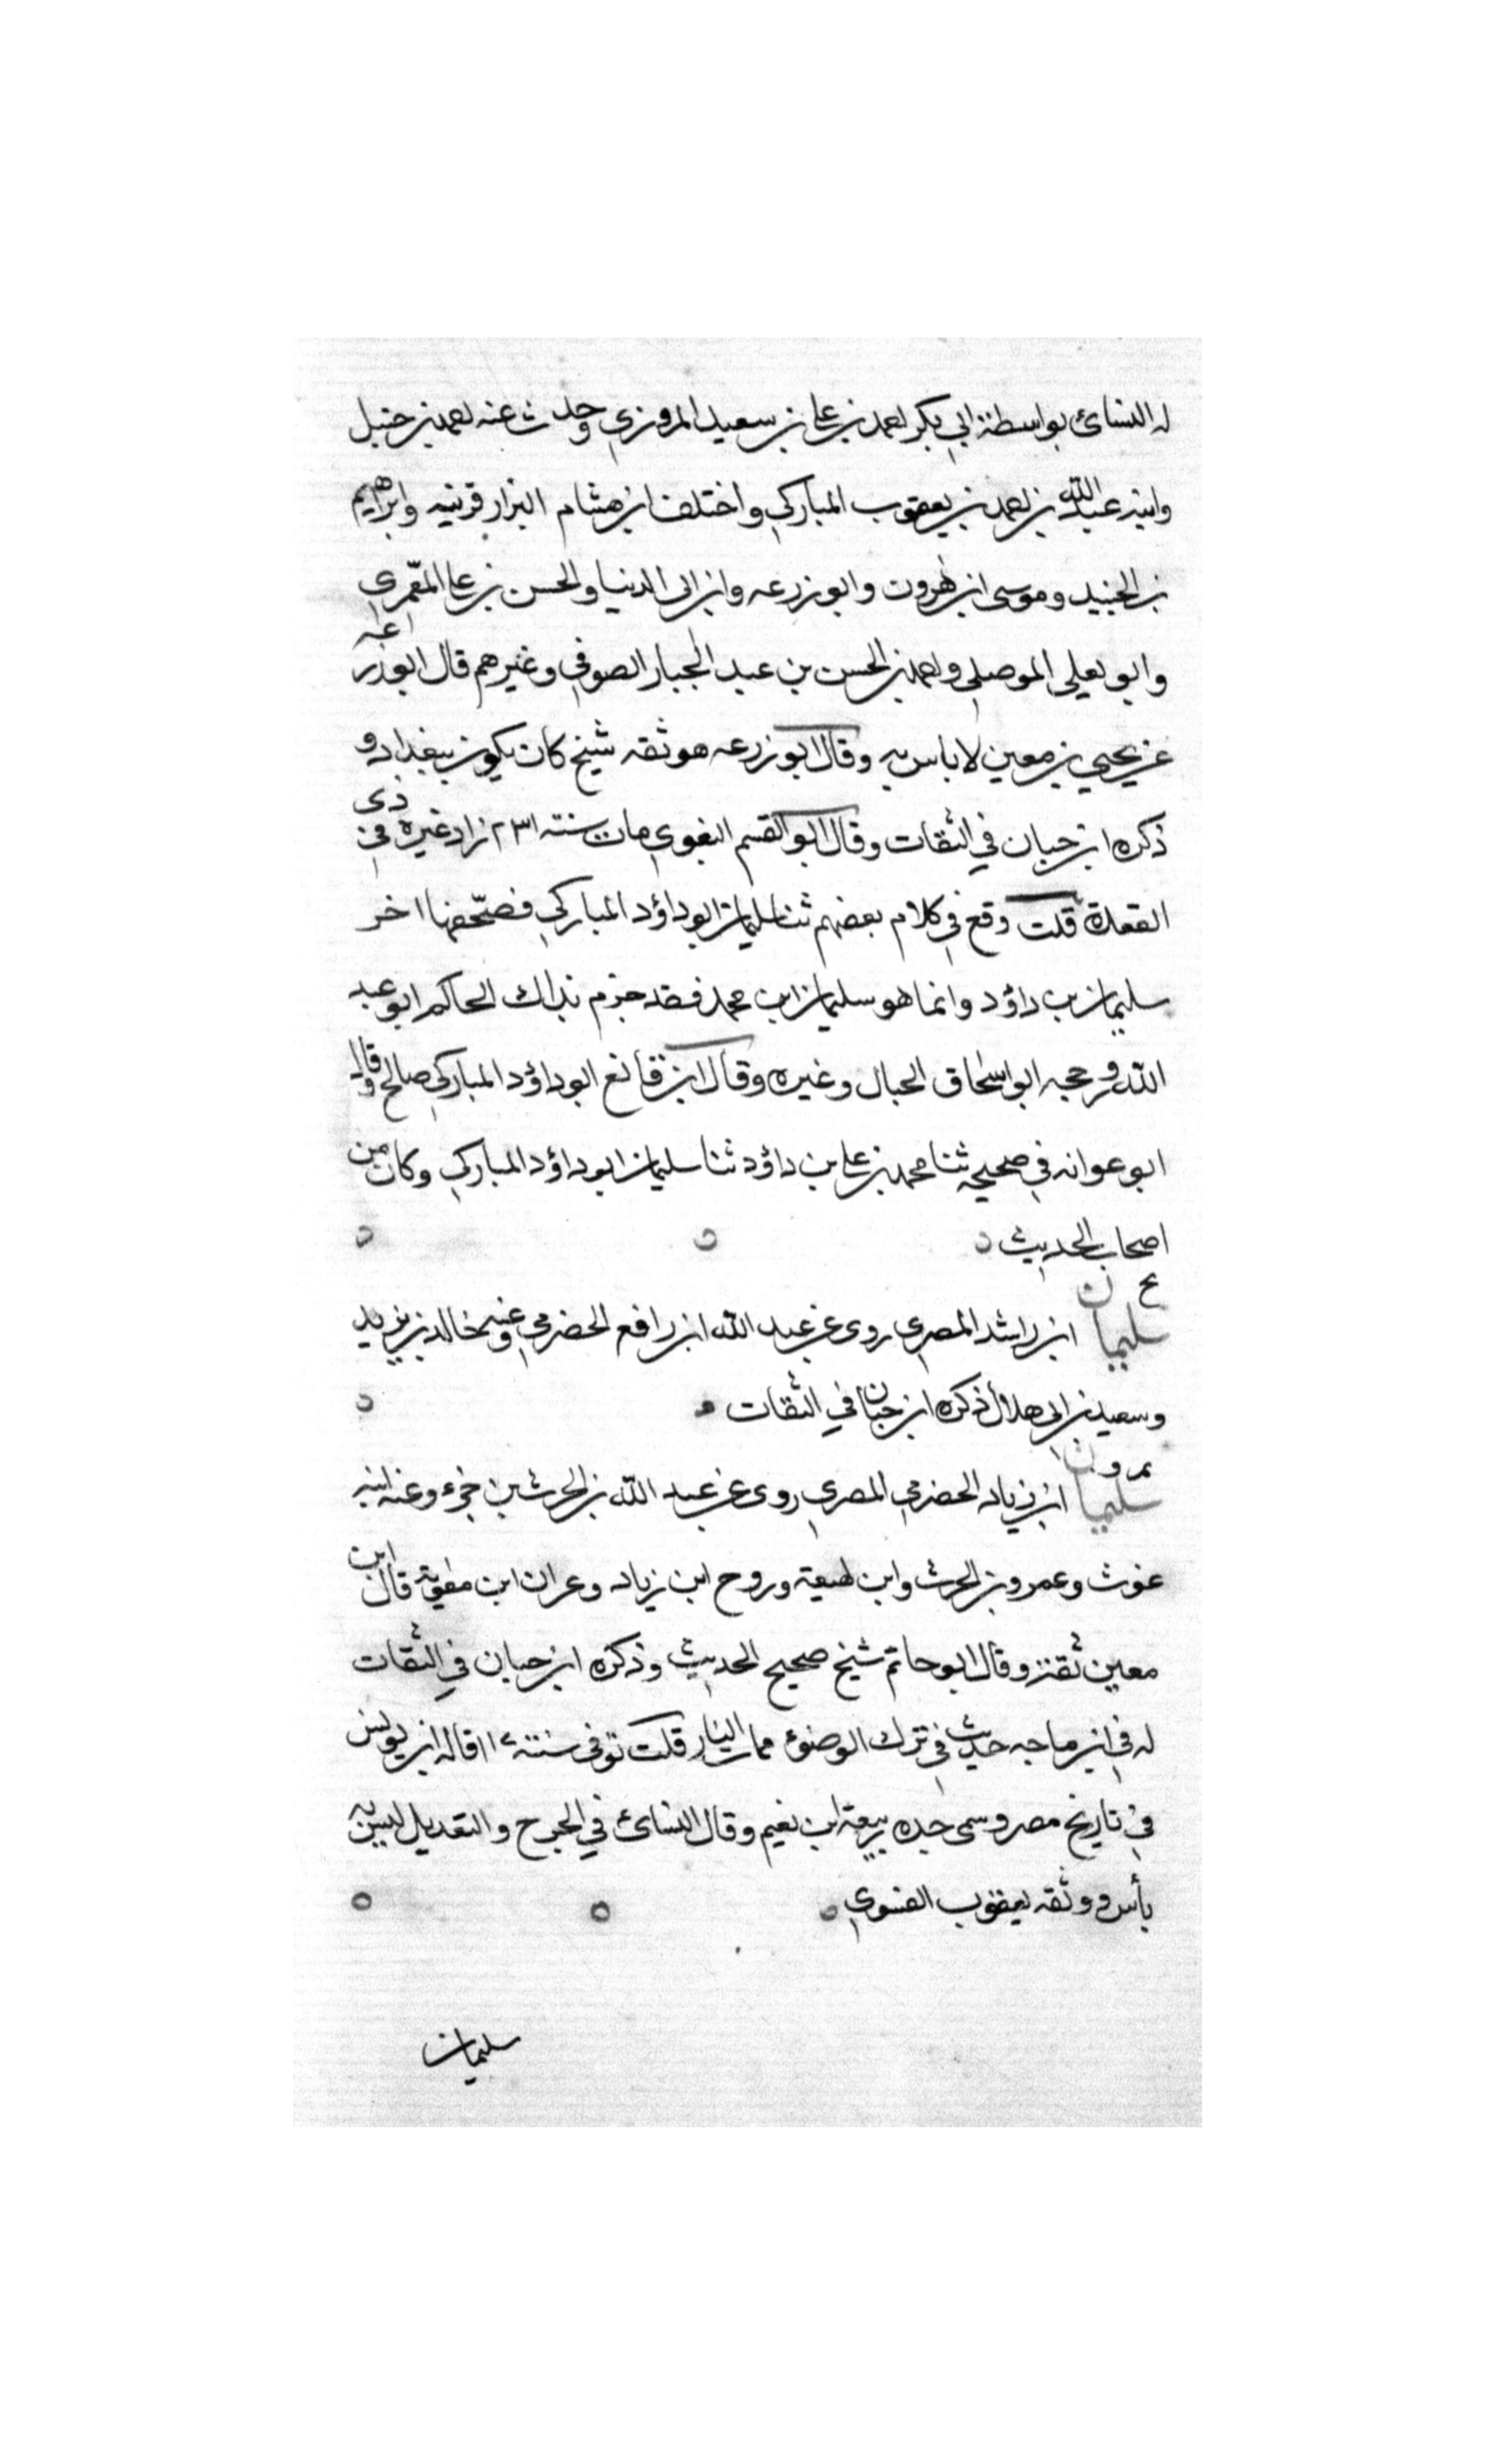 له النسائ بواسطة ابي بكر احمد بن علي بن سعيد المروزي وحدث عنه احمد بن حنبل
وابنه عبد الله بن احمد بن يعقوب المباركي واختلف ابن هشام البزار قرينه وابراهيم
بن الجنيد وموسى ابن هرون وابو زرعه وابن ابي الدنيا والحسن بن علي المعمري
وابو يعلي الموصلي واحمد بن الحسن بن عبد الجبار الصوفي وغيرهم قال ابو زرعه
عن يحيي بن معين لا باس به وقال ابو زرعه هو ثقه شيخ كان يكون ببغداد و
ذكره ابن حبان في الثقات وقال ابو القسم البغوي مات سنته ٢٣١ زاد غيره في ذى
القعدة قلت وقع في كلام بعضهم ثنا سليمان ابو داؤد المباركي فصحفها اخر
سليمان بن داؤد وانما هو سليمان ابن محمد فقد جزم بذاك الحاكم ابو عبد
الله ورجحه ابو اسحاق الحبال وغيره وقال ابن قانع ابو داؤد المباركي صالح وقال
ابو عوانه في صحيحه ثنا محمد بن علي بن داؤد ثنا سليمان ابو داؤد المباركي وكان من
اصحاب الحديث
ع
سليمان ابن راشد المصري روى عن عبد الله ابن رافع الحضرمي وعنه خالد بن يزيد
وسعيد بن ابي هلال ذكره ابن حبان في الثقات
سليمان ابن زياد الحضرمي المصري روى عن عبد الله بن الحرث بن جزء وعنه ابنه
غوث وعمرو بن الحرث وابن لهيعة وروح ابن زياد وعران ابن معوية قال ابن
معين ثقة وقال ابو حاتم شيخ صحيح الحديث وذكره ابن حبان في الثقات
له في ابن ماجه حديث في ترك الوضوء مما مست النار قلت توفى سنة ١١٧ قاله ابن يونس
في تاريخ مصر وسمى جده ربيعة ابن نعيم وقال النسائ في الجرح والتعديل ليس به
بأس ووثقه يعقوب الفسوي
سليمان